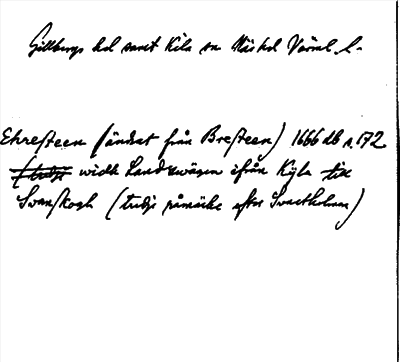 Gillbergs hd samt Kila sn Näshd Värml l.
Ehresteen (ändrat från Bresteen) 1666 db s. 172
widh Landzwägen ifrån Kyla till
Swanskogh (tredje råmärke efter Swaetholmen)